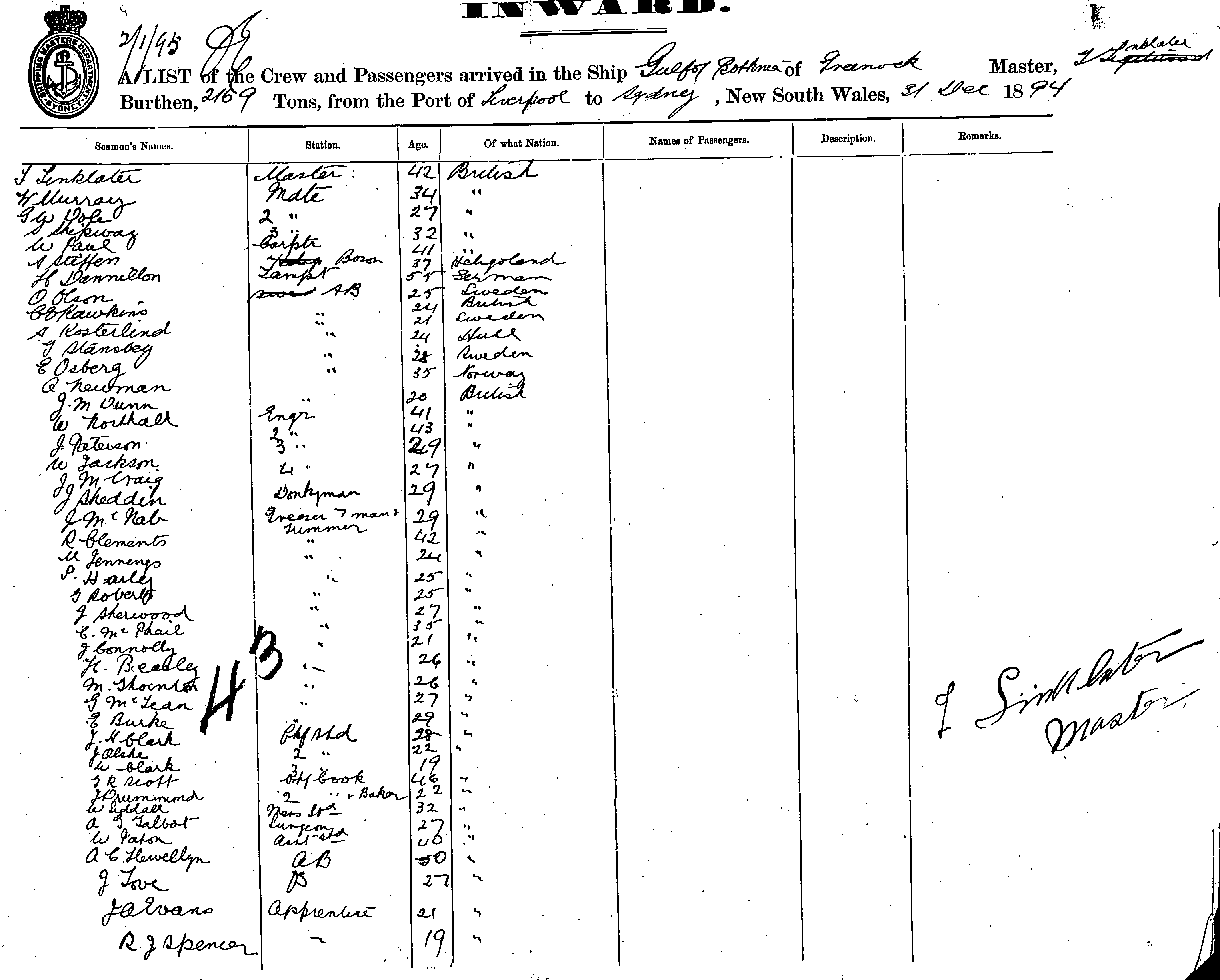 INWARD.
2/1/95
A LIST of the Crew and Passengers arrived in the Ship Gulf of Bothnia of Greenock Master, J Linklater
Burthen, 2169 Tons, from the Port of Liverpool to Sydney, New South Wales, 31 Dec 1894
Seamen's Names. Station. Age. Of what Nation. Names of Passengers. Description. Remarks.
J Linklater Master 42 British
W Murray Mate 34 "
G W Dole 2 " 27 "
S Shepway 3 " 32 "
W Paul Carptr 41 "
A Steffen Bosn 37 Heligoland
H Dannillon Lampt 55 German
O Olson AB 25 Sweden
C C Hawkins " 24 British
A Kosterlind " 21 Sweden
T Stansbey " 24 Hull
E Osberg " 28 Sweden
A Newman " 35 Norway
J. M Dunn " 20 British
W Northall Engr 41 "
J Paterson 2 " 43 "
W Jackson 3 " 29 "
J M Craig 4 " 27 "
J Shedden Donkyman 29 "
J McNab Greaser Fireman & Trimmer 29 "
R Clements " 42 "
M Jennings " 24 "
P. Harley " 25 "
T Roberts " 25 "
J Sherwood " 27 "
C. McPhail " 35 "
J Connolly " 21 "
H. Beasley " 26 "
M. Thornton " 26 "
G McLean " 27 "
E Burke " 29 "
J. H Clark Chf Std 28 "
2 " 22 "
W Clark 3 " 19 "
J R Scott Chf Cook 46 "
J Drummond 2 " & Baker 22 "
W Liddall Mess Std 32 "
A T Talbot Surgeon 27 "
W Paton Asst Std 40 "
A C Llewellyn AB 50 "
J Love 27 "
J A Evans Apprentice 21 "
R J Spencer " 19 "
43
J Linklater
Master